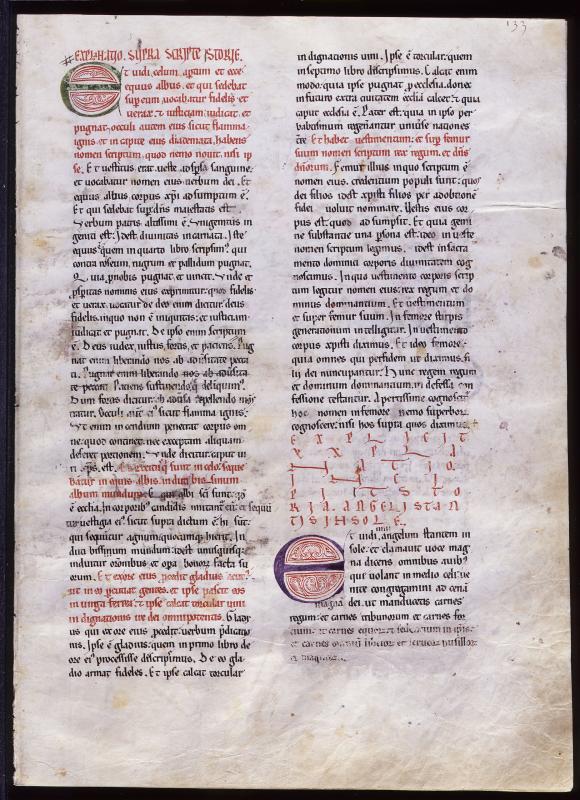 133
EXPLANATIO. SUPRA SCRIPTE ISTORIE.
Et uidi celum aptum et ecce
equus albus. et qui sedebat
sup eum uocabatur fidelis et
uerax. et iusticiam iudicat et
pugnat. occuli autem eius sicut flamma
ignis et in capite eius diademata. habens
nomen scriptum. quod nemo nouit. nisi ip
se. Et uestitus erat ueste aspsa sanguine.
et uocabatur nomen eius uerbum dei. Et
equus albus corpus xpi adsumptum ē.
Et qui sedebat sup dn̄s maiestatis est.
Verbum patris altissimi ē. Vnigenitus in
geniti est. Idest diuinitas incarnata. Iste
equus quem in quarto libro scripsim; qui
contra roseum. nigrum et pallidum pugnat.
Quia p nobis pugnat et uincit. Vnde et
p sptitas nominis eius exprimitur. quod fidelis
et uerax uocatur de deo enim dicitur. deus
fidelis. inquo non ē iniquitas. et iusticiam
iudicat et pugnat. De ipso enim scriptum
ē. Deus iudex. iustus. fortis. et paciens. Pug
nat enim liberando nos ab aduersitate pecca
ti.
Dum fortis dicitur. ab aduersa repellendo
Oculi aut eius sicut flamma ignis.
Et enim in cendium penetrat corpus om
ne. quod continet nec exceptam aliquam
deseret portionem. Vnde dicitur. caput ui
ri xps. est. Et exercitus qui sunt in celo. seque
batur in equis albis. induti bissinum
album mundum. Equi albi sci sunt.
ē ecclia. In corporibus candidis imitant cū et sequi
tur uestigia eius sicut supra dictum ē. hi sunt
qui sequntur agnum quocumque hierit. In
duti bissinum mundum. idest unusquisque
induitur eonibus et opa bonorum facta su
orum. Et exore eius procedit gladius acutus.
ut in eo pcutiat gentes. et ipse pascet eos
in uirga ferrea. et ipse calcat torcular uini
in dignationis ire dei omnipotentis. Gladi
us qui ex ore eius procedit. uerbum predicatio
nis. Ipse ē gladius. quem in primo libro de
ore eius processisse descripsimus. De eo gla
dio armat fideles. Et ipse calcat torcular
in dignacionis uini. Ipse ē torcular. quem
in septimo libro descripsimus. Calcat enim
modo. quia ipse pugnat. pecclesia. donec
in futuro extra ciuitatem eccliā calcet. quia
caput ecclesia ē. Pater est. quia in ipso per
babtismum regenerantur uniuse naciones
tre. Et habet uestimentum. et sup femur
suum nomen scriptum rex regum. et dn̄s
dn̄orum. Femur illius inquo scriptum ē
nomen eius. credentium populi sunt. quos
dei filios idest xpisti filios per adobtionē
fidei uoluit nominare. Vestis eius cor
pus est. quod ad sumpsit. Et quia gemi
ne substantie una psona est. ideo in ueste
nomen scriptum legimus. idest in sacra
mento dominici corporis diuinitatem cog
noscimus. Inquo uestimento corporis scrip
tum legitur nomen eius. rex regum et do
minus dominantium. Et uestimentum
et super femur suum. In femore stirpis
generationum intelligitur. In uestimento
corpus xpisti diximus. Et ideo femore.
quia omnes qui perfidem ut diximus. fi
lii dei nuncupantur. Hunc regem regum
et dominum dominantium. in defessa con
fessione testantur. Apertissime cognoscat
hoc nomen infemore nemo superbor.
cognoscere. nisi hos supra quos diximus.
EXPLICIT
EXPLA
NATIO.
INCI
PIT ISTO
RIA. ANGELI STAN
TIS IN SOLE.
Et uidi angelum stantem in
sole. et clamauit uoce mag
na dicens omnibus auibus
que uolant in medio celi. ue
nite congregamini ad cenā
magnā dei. ut manducetis carnes
regum. et carnes tribunorum et carnes for
cium. et carnes equorum et sedentium in ipsis.
et carnes omnium liberorum et seruorum pusillor
et magnorum.